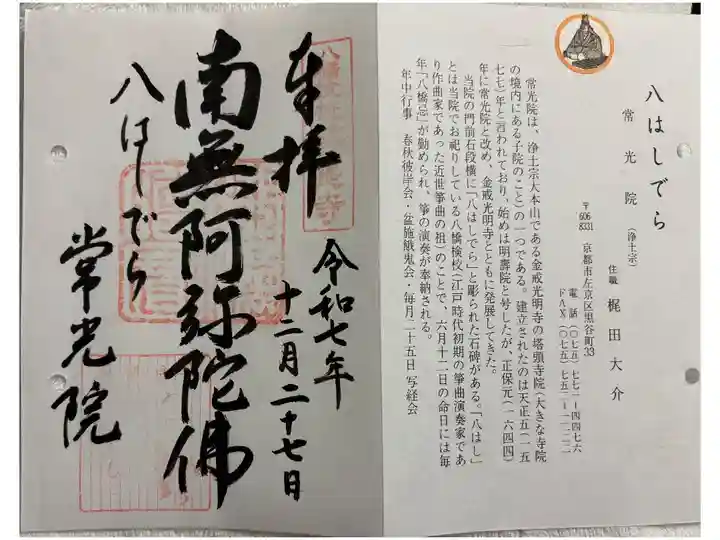 八はしでら
常光院
(浄土宗)
住職 梶田大介
〒606-8331 京都市左京区黒谷町33
電話(〇七五)七七一ー四四七六
FAX(〇七五)七五二ー一一二二
常光院は、浄土宗大本山である金戒光明寺の塔頭寺院(大きな寺院
の境内にある子院のこと)の一つである。建立されたのは天正五(一五
七七)年と言われており、始めは明壽院と号したが、正保元(一六四四)
年に常光院と改め、金戒光明寺とともに発展してきた。
当院の門前石段横に「八はしでら」と彫られた石碑がある。「八はし」
とは当院でお祀りしている八橋検校(江戸時代初期の箏曲演奏家であ
り作曲家であった近世箏曲の祖)のことで、六月十二日の命日には毎
年「八橋忌」が勤められ、箏の演奏が奉納される。
年中行事 春秋彼岸会・盆施餓鬼会・毎月二十五日 写経会
奉拝
令和七年
十二月二十七日
南無阿弥陀佛
八はしでら
常光院